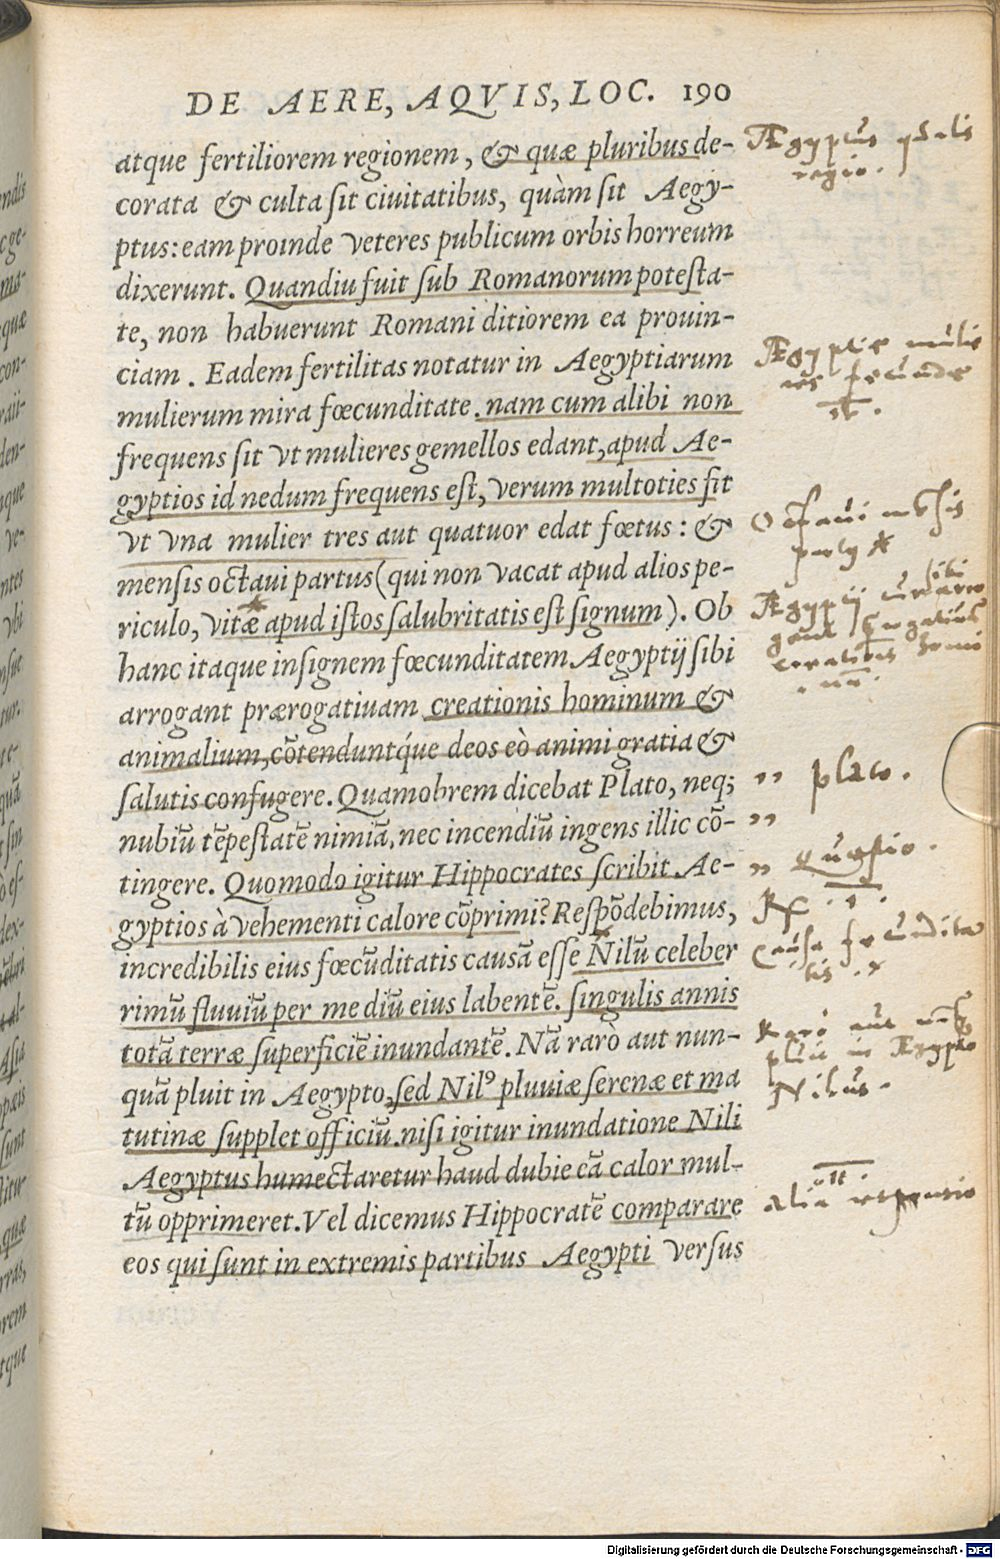 DE AERE, AQVIS, LOC. 190
atque fertiliorem regionem, & quæ pluribus de-
corata & culta sit ciuitatibus, quàm sit Aegy-
ptus: eam proinde veteres publicum orbis horreum
dixerunt. Quandiu fuit sub Romanorum potesta-
te, non habuerunt Romani ditiorem ea prouin-
ciam. Eadem fertilitas notatur in Aegyptiarum
mulierum mira fœcunditate. nam cum alibi non
frequens sit vt mulieres gemellos edant, apud Ae-
gyptios id nedum frequens est, verum multoties fit
vt vna mulier tres aut quatuor edat fœtus: &
mensis octaui partus (qui non vacat apud alios pe-
riculo, vitæ apud istos salubritatis est signum). Ob
hanc itaque insignem fœcunditatem Aegyptij sibi
arrogant prærogatiuam creationis hominum &
animalium, cōtendunt́que deos eò animi gratia &
salutis confugere. Quamobrem dicebat Plato, neq;
nubiū tēpestatē nimiā, nec incendiū ingens illic cō-
tingere. Quomodo igitur Hippocrates scribit Ae-
gyptios à vehementi calore cōprimi? Respōdebimus,
incredibilis eius fœcūditatis causā esse Nilū celeber
rimū fluuiū per mediū eius labentē. singulis annis
totā terræ superficiē inundantē. Nā rarò aut nun-
quā pluit in Aegypto, sed Nilꝰ pluuiæ serenæ et ma
tutinæ supplet officiū. nisi igitur inundatione Nili
Aegyptus humectaretur haud dubie eā calor mul-
tū opprimeret. Vel dicemus Hippocratē comparare
eos qui sunt in extremis partibus Aegypti versus
Ægyptus
regio.
Ægyptie mulie
res fecunde
Octaui mēsis
Ægyptij
plato.
Quæstio.
Causa fecundita
tis
Raro aut
pluit in Ægypto
Nilus.
alia responsio
Digitalisierung gefördert durch die Deutsche Forschungsgemeinschaft - DFG